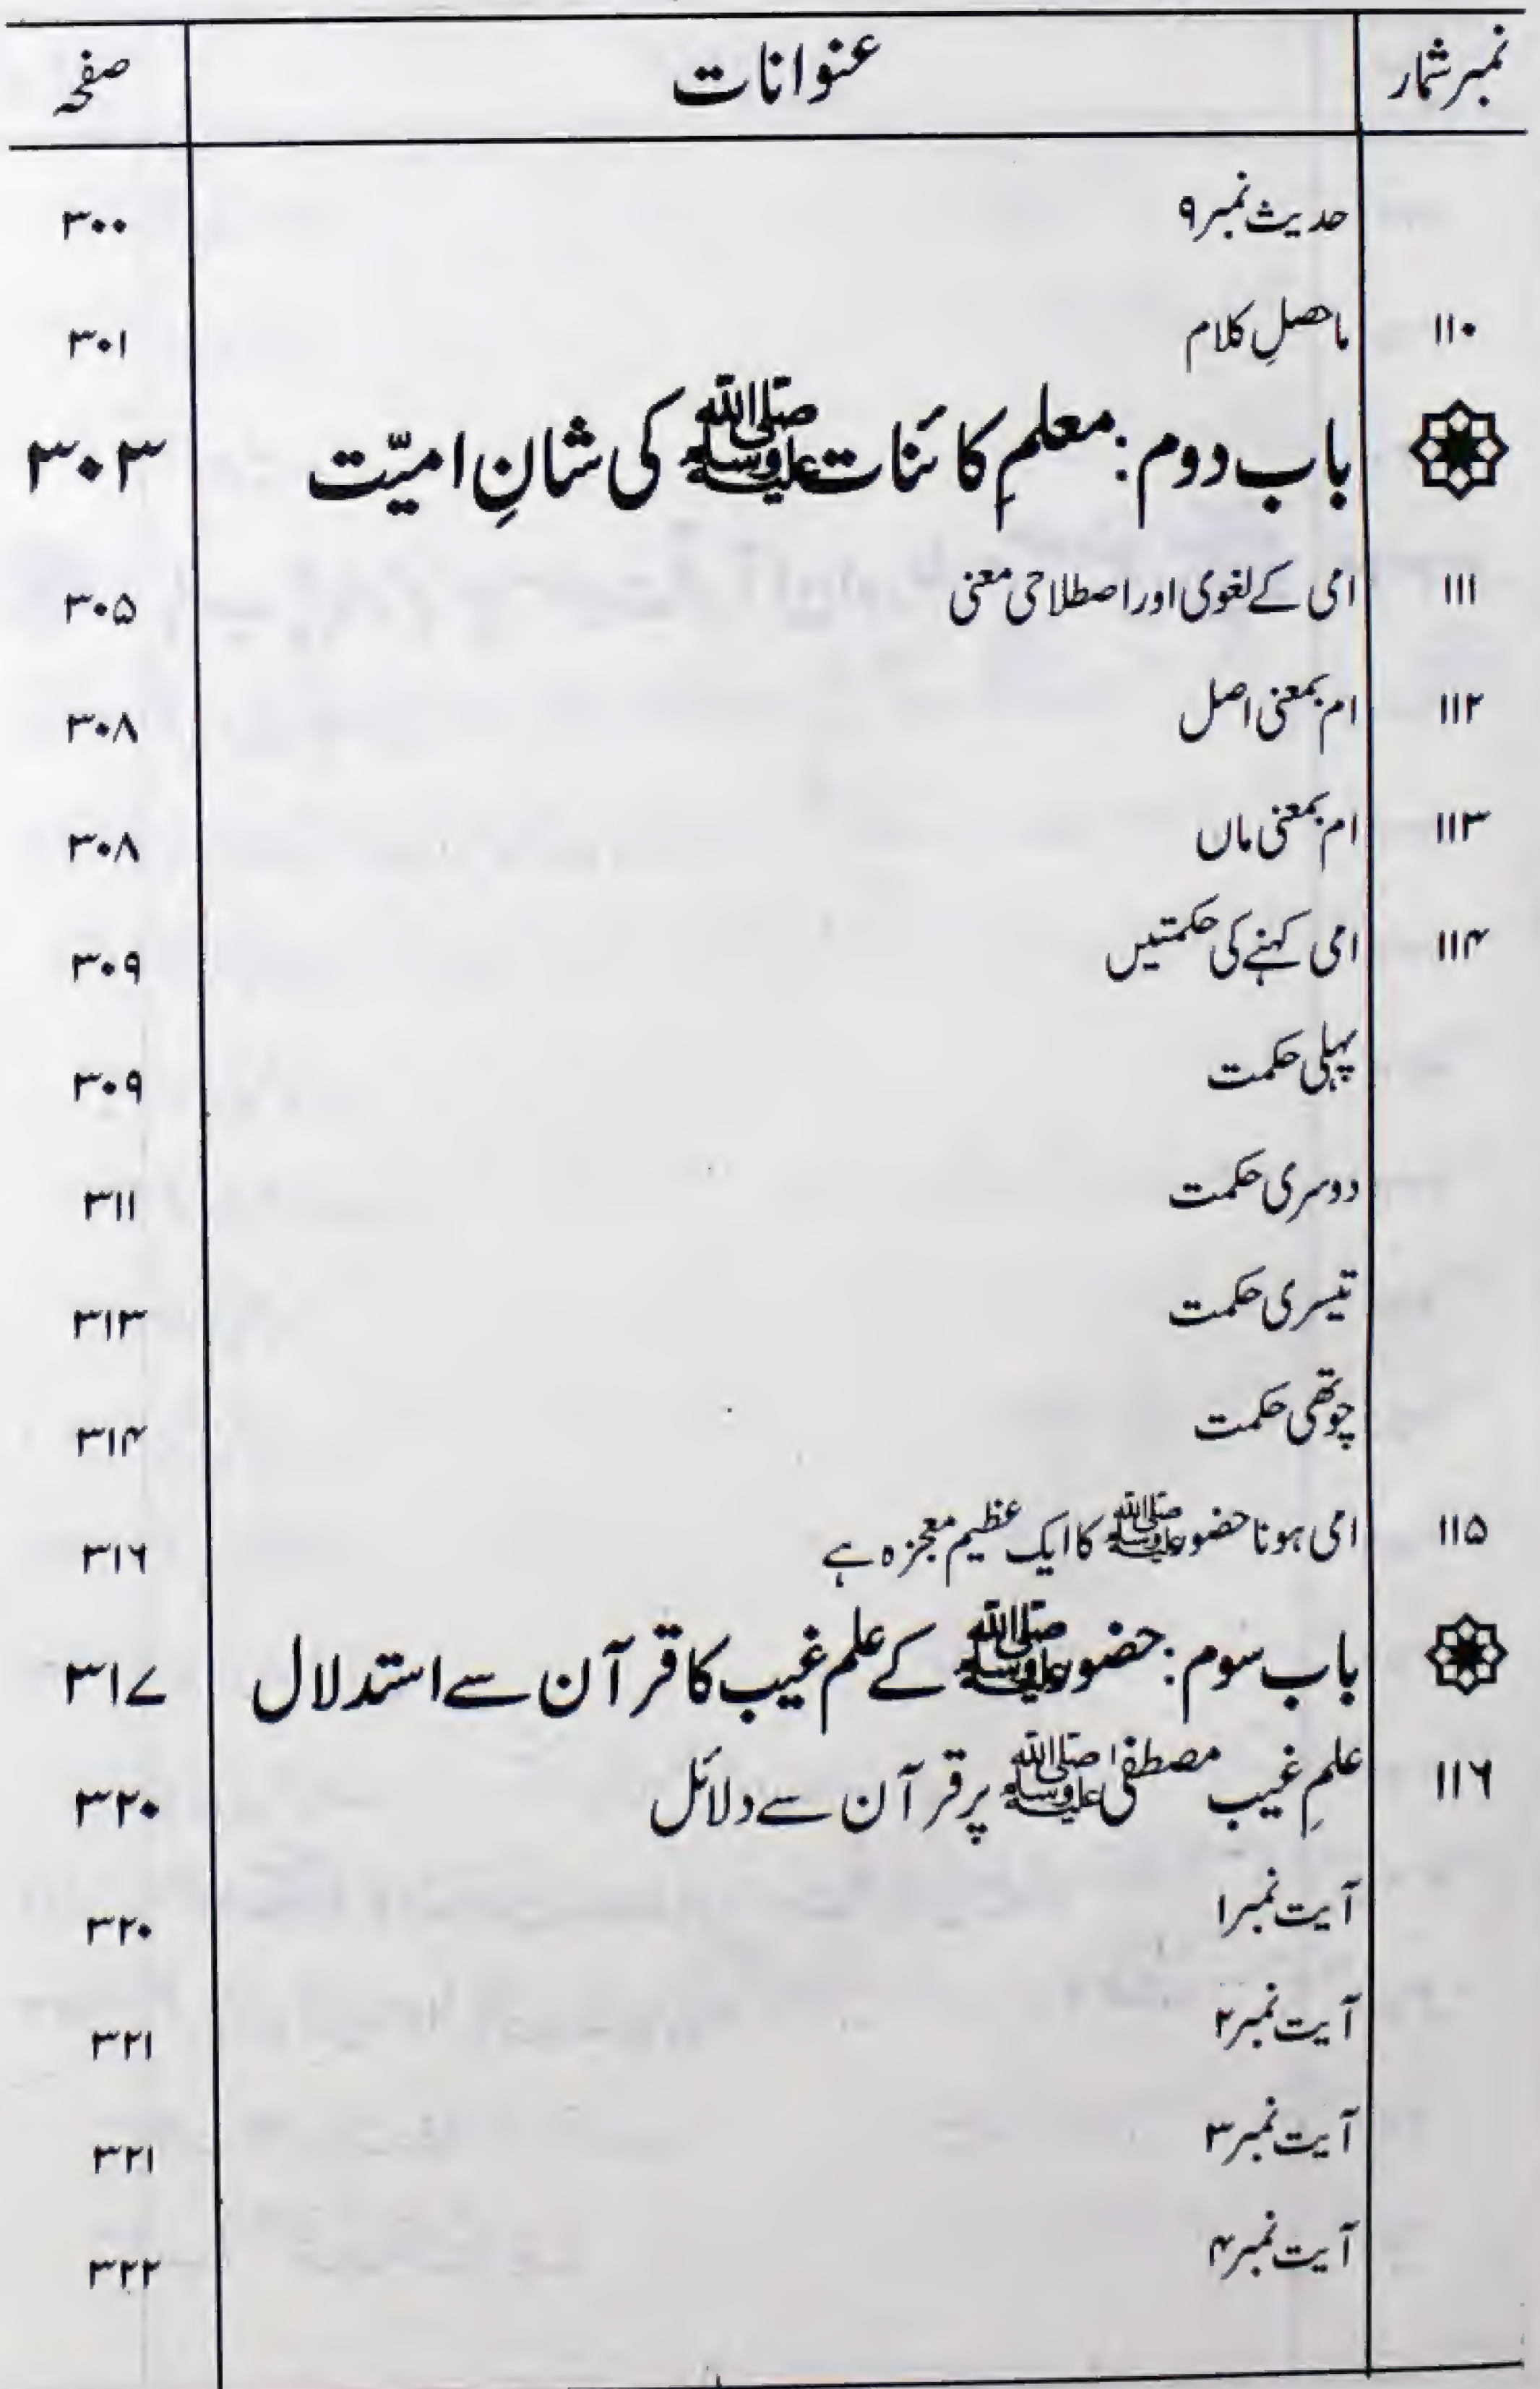 نمبر شمار عنوانات صفحہ
حدیث نمبر ۹ ۳۰۰
۱۱۰ ماحصلِ کلام ۳۰۱
باب دوم: معلمِ کائنات ﷺ کی شانِ امیّت ۳۰۳
۱۱۱ امی کے لغوی اور اصطلاحی معنی ۳۰۵
۱۱۲ ام بمعنی اصل ۳۰۸
۱۱۳ ام بمعنی ماں ۳۰۸
۱۱۴ امی کہنے کی حکمتیں ۳۰۹
پہلی حکمت ۳۰۹
دوسری حکمت ۳۱۱
تیسری حکمت ۳۱۳
چوتھی حکمت ۳۱۴
۱۱۵ امی ہونا حضور ﷺ کا ایک عظیم معجزہ ہے ۳۱۶
باب سوم: حضور ﷺ کے علم غیب کا قرآن سے استدلال ۳۱۷
۱۱۶ علمِ غیب مصطفیٰ ﷺ پر قرآن سے دلائل ۳۲۰
آیت نمبر ۱ ۳۲۰
آیت نمبر ۲ ۳۲۱
آیت نمبر ۳ ۳۲۱
آیت نمبر ۴ ۳۲۲